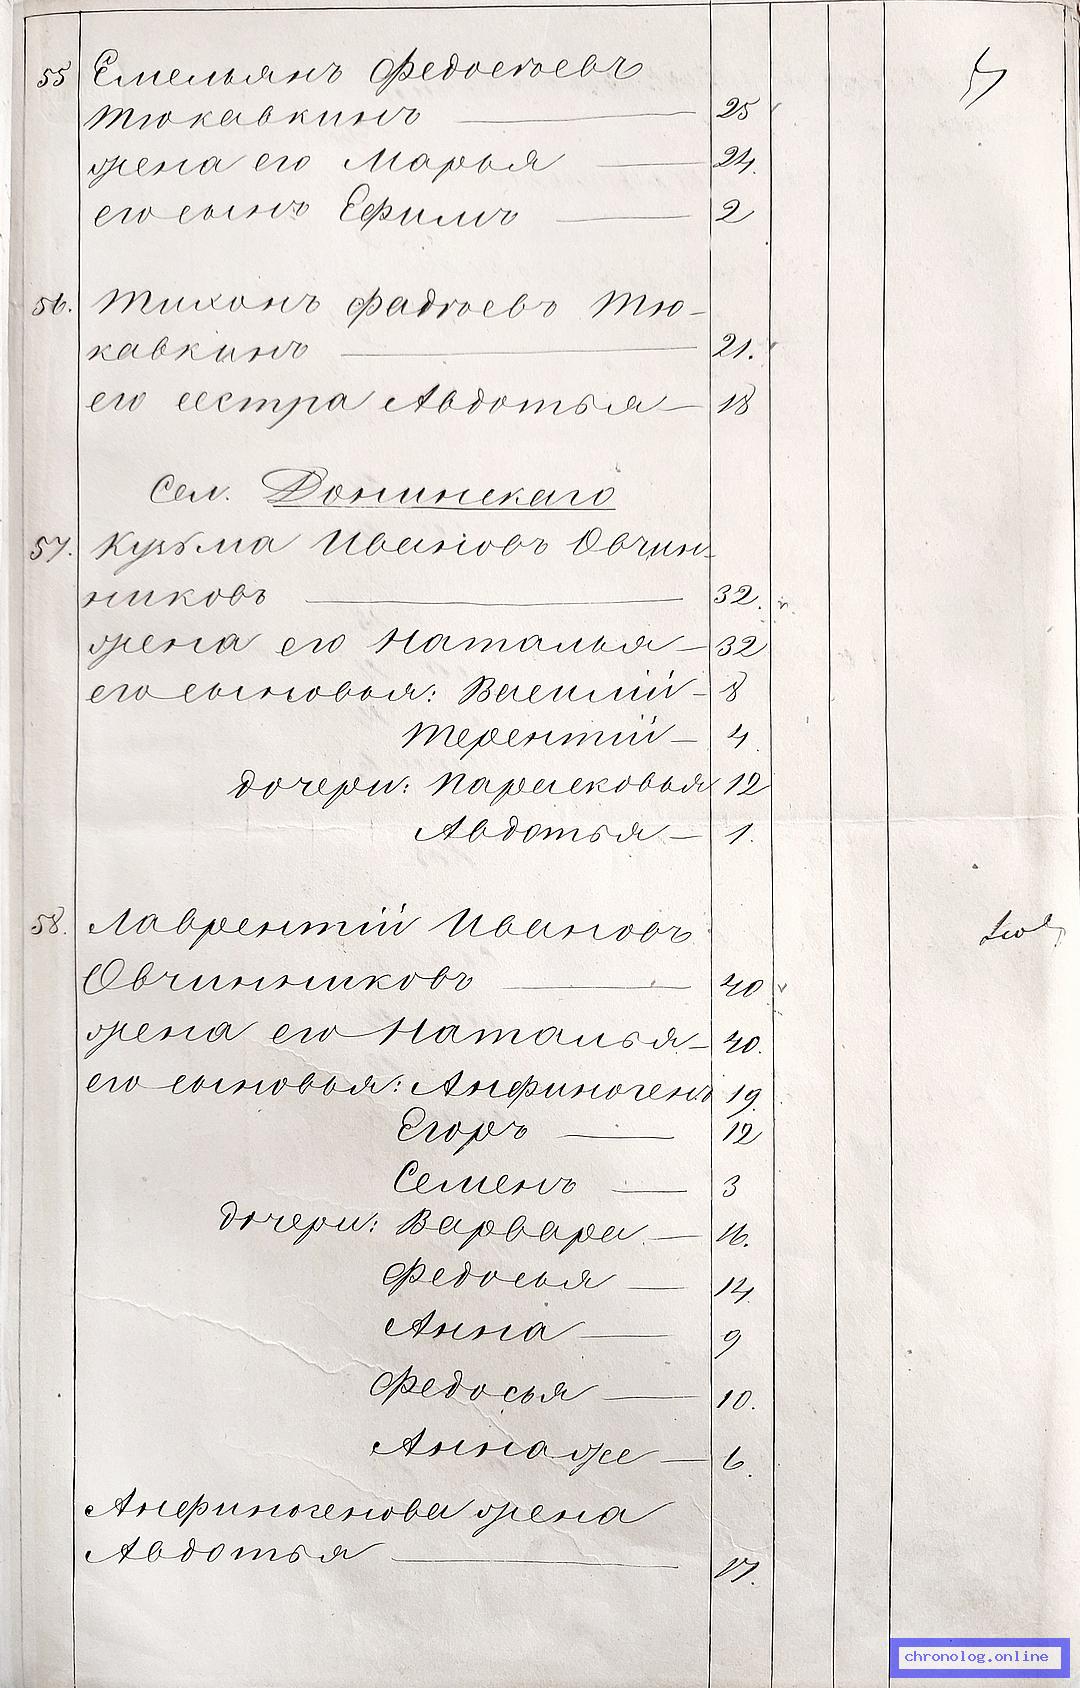 55 Емельянъ Федосѣевъ
Тюкавкинъ — 25
жена его Марья — 24.
его сынъ Ефимъ — 2
56. Тихонъ Фадѣевъ Тю-
кавкинъ — 21.
его сестра Авдотья — 18
Сел. Донинскаго
57. Кузьма Ивановъ Овчин-
никовъ — 32.
жена его Наталья — 32
его сыновья: Василій — 8
Терентій — 4.
дочери: Парасковья 12
Авдотья — 1.
58. Лаврентій Ивановъ
Овчинниковъ — 40
жена его Наталья — 40.
его сыновья: Анфиногенъ 19.
Егоръ — 12
Семенъ — 3
дочери: Варвара — 16.
Федосья — 14.
Анна — 9
Федосья — 10.
Анна же — 6.
Анфиногенова жена
Авдотья — 17.
chronolog.online